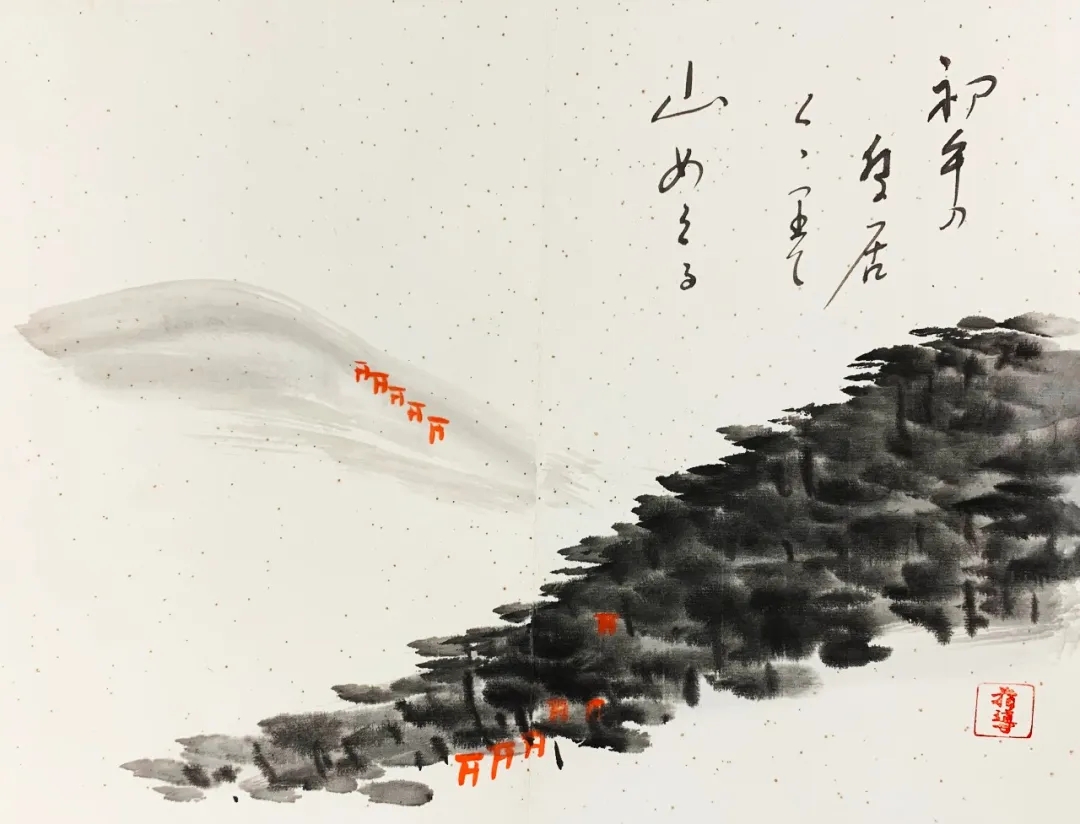 初午の
鳥居
くゝ里て
山めくる
指導